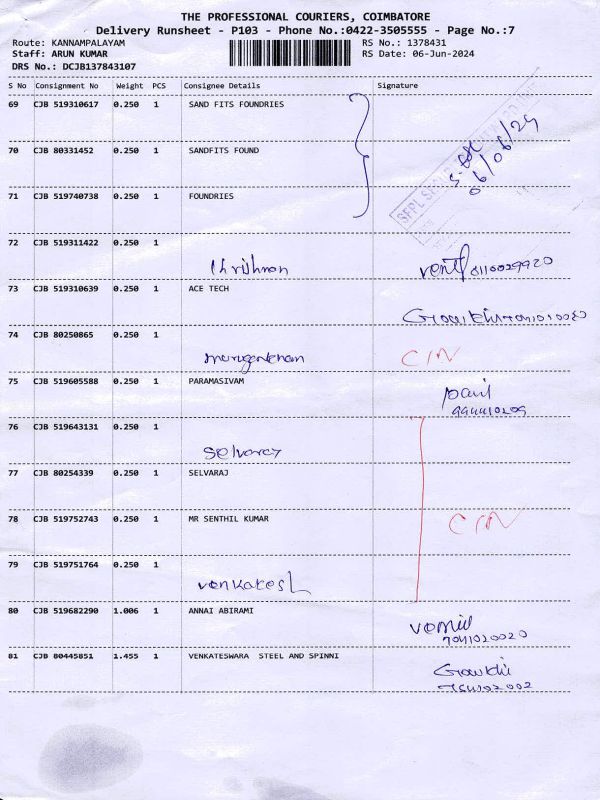 THE PROFESSIONAL COURIERS, COIMBATORE
Delivery Runsheet - P103 - Phone No.:0422-3505555 - Page No.:7
Route: KANNAMPALAYAM RS No.: 1378431
Staff: ARUN KUMAR RS Date: 06-Jun-2024
DRS No.: DCJB137843107
S No Consignment No Weight PCS Consignee Details Signature
69 CJB 519310617 0.250 1 SAND FITS FOUNDRIES
70 CJB 80331452 0.250 1 SANDFITS FOUND
71 CJB 519740738 0.250 1 FOUNDRIES
72 CJB 519311422 0.250 1
73 CJB 519310639 0.250 1 ACE TECH
74 CJB 80250865 0.250 1
CIN
75 CJB 519605588 0.250 1 PARAMASIVAM
76 CJB 519643131 0.250 1
Selvaraj
77 CJB 80254339 0.250 1 SELVARAJ
78 CJB 519752743 0.250 1 MR SENTHIL KUMAR CIN
79 CJB 519751764 0.250 1
Venkatesh
80 CJB 519682290 1.006 1 ANNAI ABIRAMI
81 CJB 80445851 1.455 1 VENKATESWARA STEEL AND SPINNI